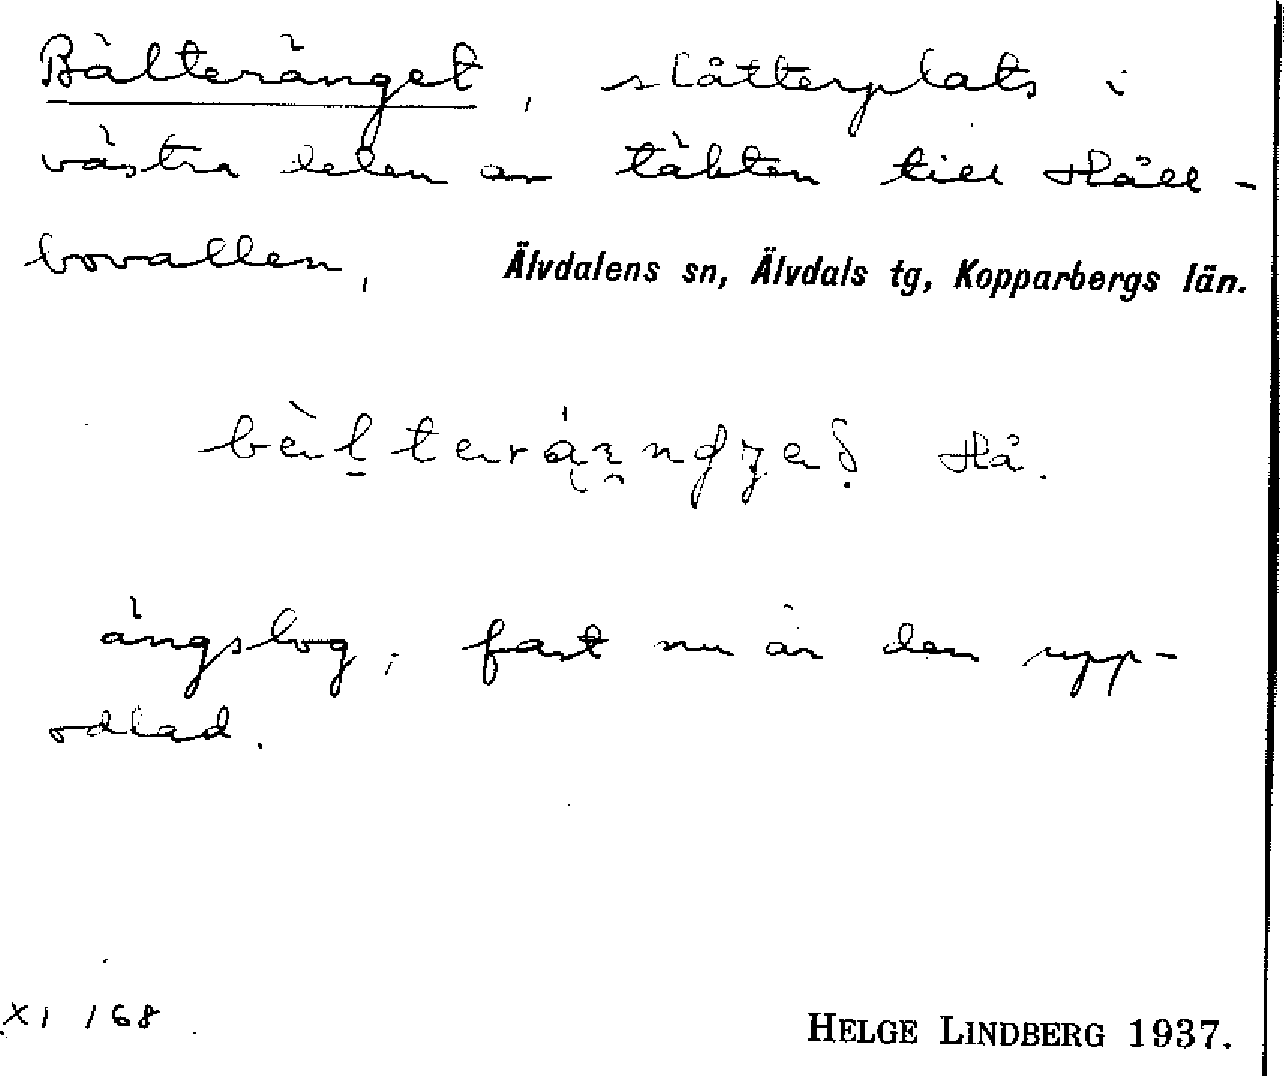 Bälteränget, slåtterplats i
västra delen av täkten till Håll-
bovallen, Älvdalens sn, Älvdals tg, Kopparbergs län.
Hå.
ängslog, fast nu är den upp-
odlad.
XI 168
HELGE LINDBERG 1937.